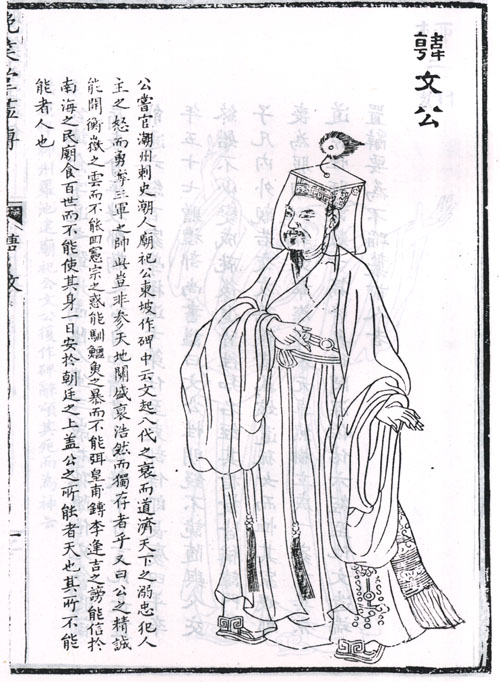 韓文公
公嘗官潮州刺史潮人廟祀公東坡作碑中云文起八代之衰而道濟天下之溺忠犯人
主之怒而勇奪三軍之帥此豈非参天地關盛衰浩然而獨存者乎又曰公之精誠
能開衡嶽之雲而不能回憲宗之惑能馴鱷魚之暴而不能弭皇甫鎛李逢吉之謗能信於
南海之民廟食百世而不能使其身一日安於朝廷之上盖公之所能者天也其所不能
能者人也